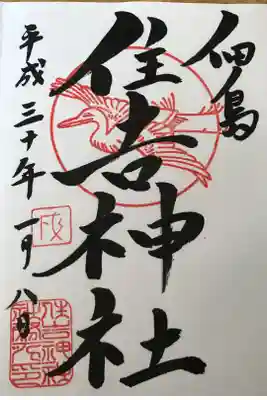 佃島
住吉神社
平成三十年一月八日
戌